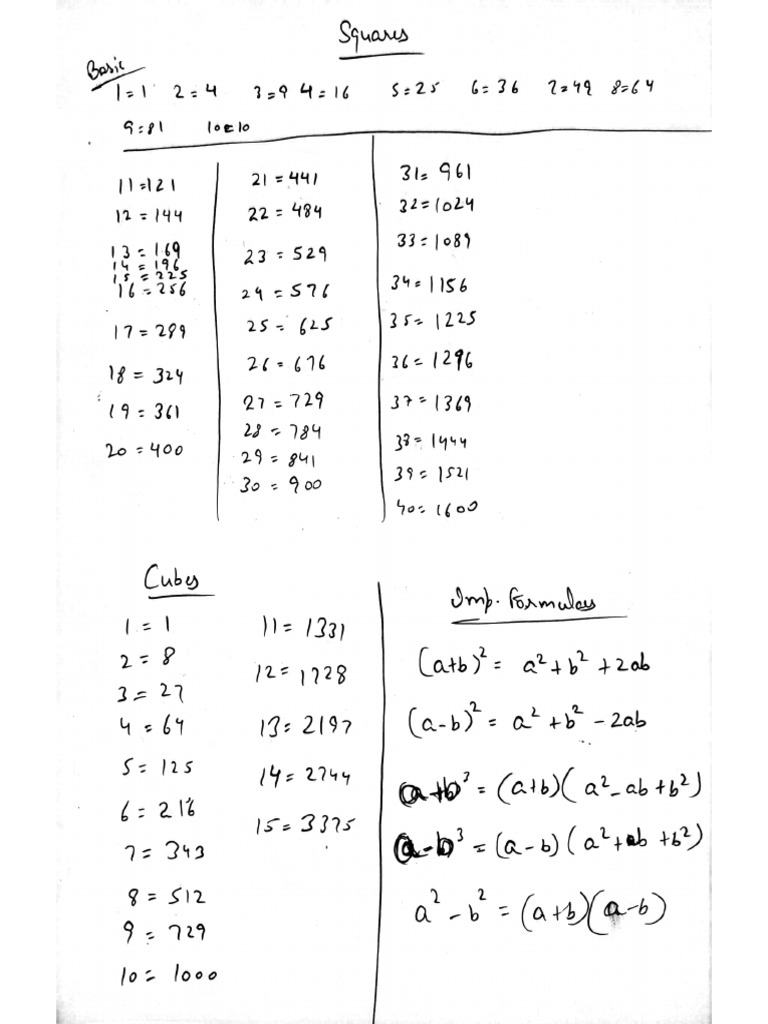 Squares
Basic
1=1 2=4 3=9 4=16 5=25 6=36 7=49 8=64
9=81 10=10
11=121
12=144
13=169
14=196
15=225
16=256
17=289
18=324
19=361
20=400
21=441
22=484
23=529
24=576
25=625
26=676
27=729
28=784
29=841
30=900
31=961
32=1024
33=1089
34=1156
35=1225
36=1296
37=1369
38=1444
39=1521
40=1600
Cubes
1=1
2=8
3=27
4=64
5=125
6=216
7=343
8=512
9=729
10=1000
11=1331
12=1728
13=2197
14=2744
15=3375
Imp. Formulas
(a+b)²=a²+b²+2ab
(a-b)²=a²+b²-2ab
a+b³=(a+b)(a²-ab+b²)
a-b³=(a-b)(a²+ab+b²)
a²-b²=(a+b)(a-b)